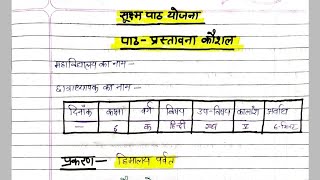 सूक्ष्म पाठ योजना
पाठ - प्रस्तावना कौशल
महाविद्यालय का नाम -
छात्राध्यापक का नाम -
दिनाँक कक्षा वर्ग विषय उप-विषय कालांश अवधि
— 6 क हिन्दी गद्य I 6 मिनट
प्रकरण - हिमालय पर्वत